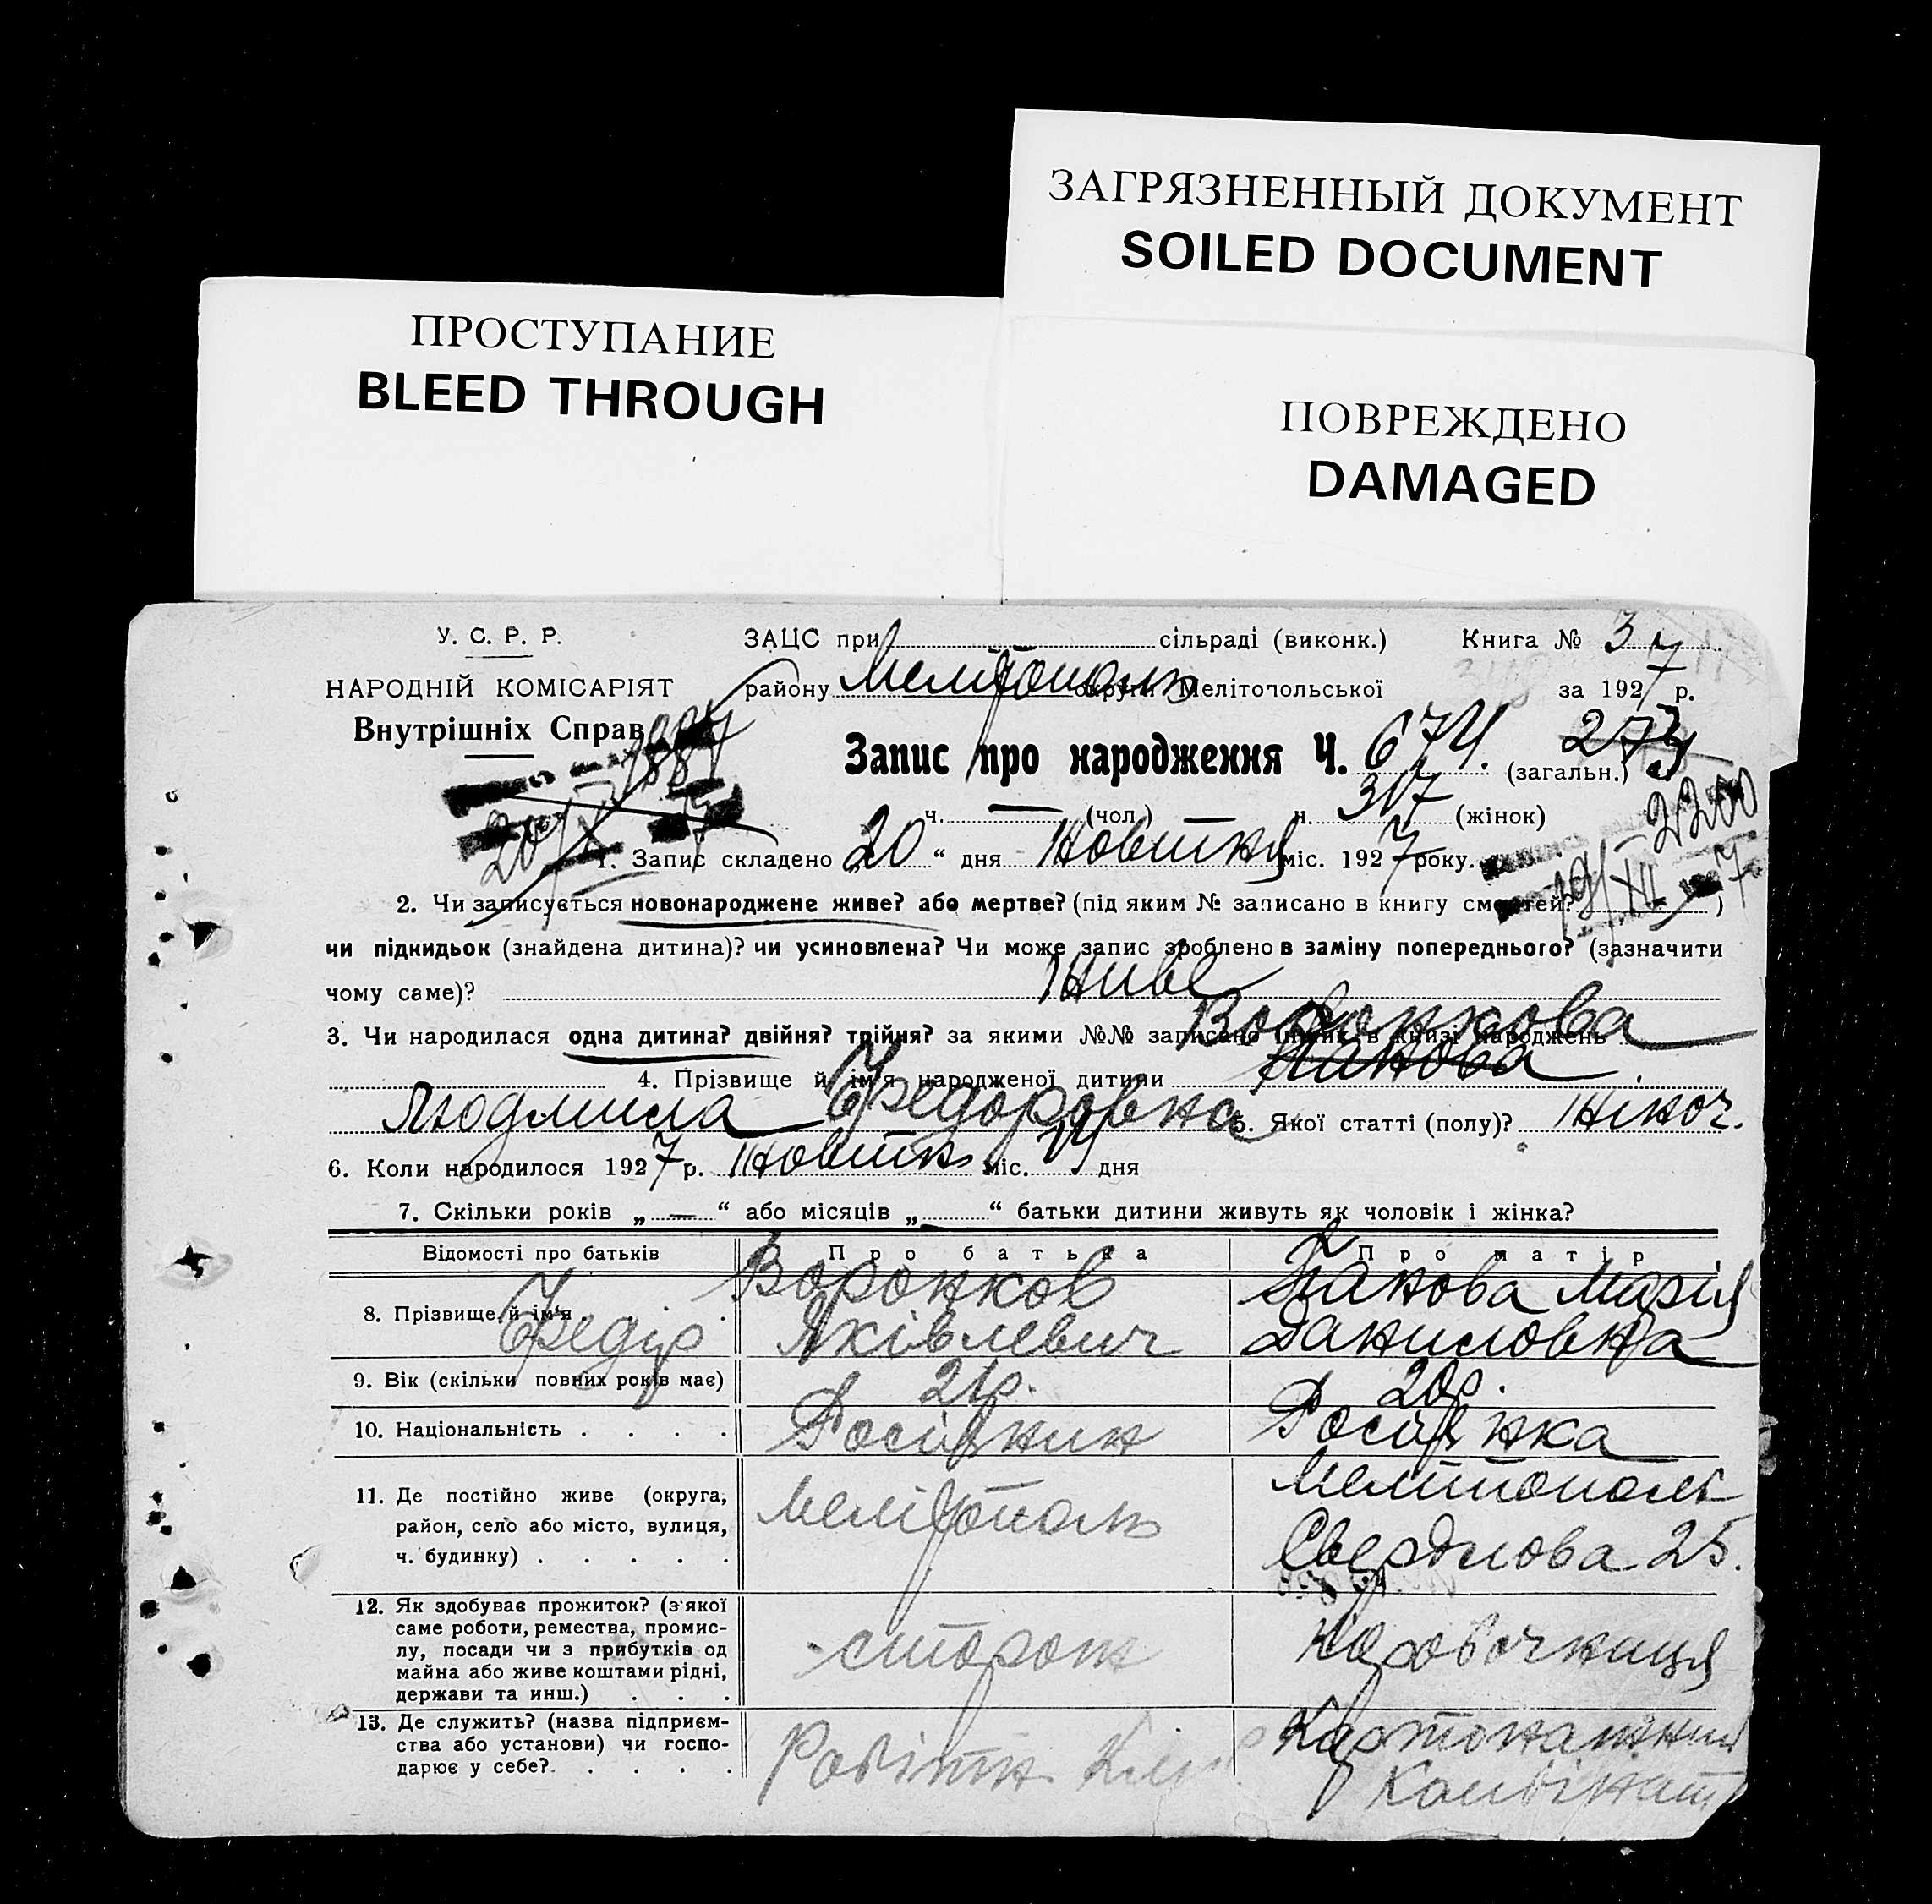 ЗАГРЯЗНЕННЫЙ ДОКУМЕНТ
SOILED DOCUMENT
ПРОСТУПАНИЕ
BLEED THROUGH
ПОВРЕЖДЕНО
DAMAGED
У. С. Р. Р.
НАРОДНІЙ КОМІСАРІЯТ
Внутрішніх Справ
ЗАЦС при сільраді (виконк.) Книга № 3
району Мелітополь округи Мелітопольської за 1927 р.
Запис про народження Ч. 674. (загальн.)
ч. — (чол.) н. 307 (жінок)
2200
1. Запис складено „20“ дня Новтня міс. 1927 року.
2. Чи записується новонароджене живе? або мертве? (під яким № записано в книгу смертей? )
чи підкидьок (знайдена дитина)? чи усиновлена? Чи може запис зроблено в заміну попереднього? (зазначити
чому саме)? Живе
3. Чи народилася одна дитина? двійня? трійня? за якими №№ записано інших в книзі народжень
Воронкова
4. Прізвище й ім'я народженої дитини Панова
Людмила Федоровна 5. Якої статті (полу)? Жіноч.
6. Коли народилося 1927 р. Жовтн міс. дня
7. Скільки років „ — “ або місяців „ “ батьки дитини живуть як чоловік і жінка?
Відомості про батьків Про батька Про матір
8. Прізвище й ім'я Федір Воронков Яківлевич Панова Марія Даниловна
9. Вік (скільки повних років має) 21р. 20р.
10. Національність . . . . Росіянин Росіянка
11. Де постійно живе (округа,
район, село або місто, вулиця,
ч. будинку) . . . . . Мелітополь Мелітополь Свердлова 25.
12. Як здобуває прожиток? (з якої
саме роботи, ремества, промис-
лу, посади чи з прибутків од
майна або живе коштами рідні,
держави та инш.) . . . сторож
13. Де служить? (назва підприєм-
ства або установи) чи госпо-
дарює у себе? . . . . Робітн.